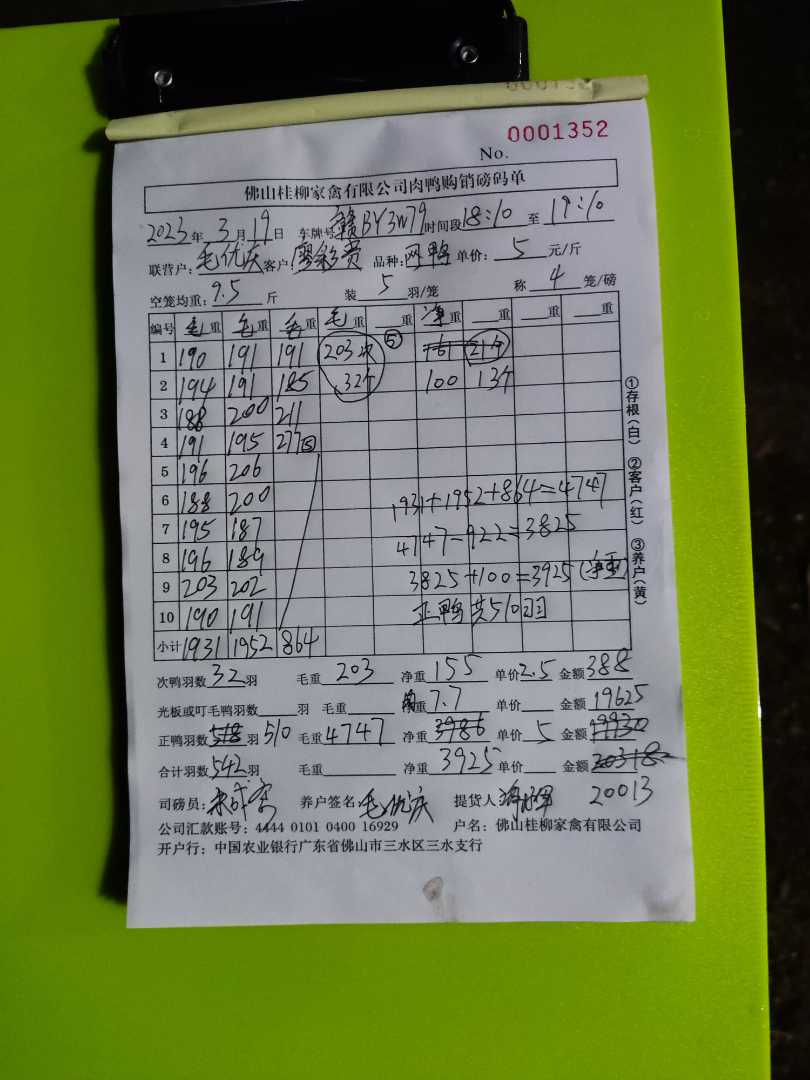 0001352
No.
佛山桂柳家禽有限公司肉鸭购销磅码单
2023年 3月19日 车牌号 赣BY3W79 时间段 18:10 至 19:10
联营户: 毛优庆 客户: 廖彩贵 品种: 网鸭 单价: 5 元/斤
空笼均重: 9.5 斤 装 5 羽/笼 称 4 笼/磅
编号 毛重 毛重 毛重 毛重 重 净重 重 重 重
1 190 191 191 203次 ⑤ 161 21个
2 194 191 185 32个 100 13个
3 188 200 211
4 191 195 277 ⑮
5 196 206
6 188 200 1931+1952+864=4747
7 195 187 4747-922=3825
8 196 189
9 203 202 3825+100=3925(净重)
10 190 191 正鸭共510羽
小计 1931 1952 864
次鸭羽数 32 羽 毛重 203 净重 155 单价 2.5 金额 388
光板或叮毛鸭羽数 羽 毛重 净重 7.7 单价 金额 19625
正鸭羽数 518 羽 510 毛重 4747 净重 3986 单价 5 金额 19930
合计羽数 542 羽 毛重 净重 3925 单价 金额 20318
20013
司磅员: 养户签名: 毛优庆 提货人
公司汇款账号: 4444 0101 0400 16929 户名: 佛山桂柳家禽有限公司
开户行: 中国农业银行广东省佛山市三水区三水支行
①存根(白) ②客户(红) ③养户(黄)